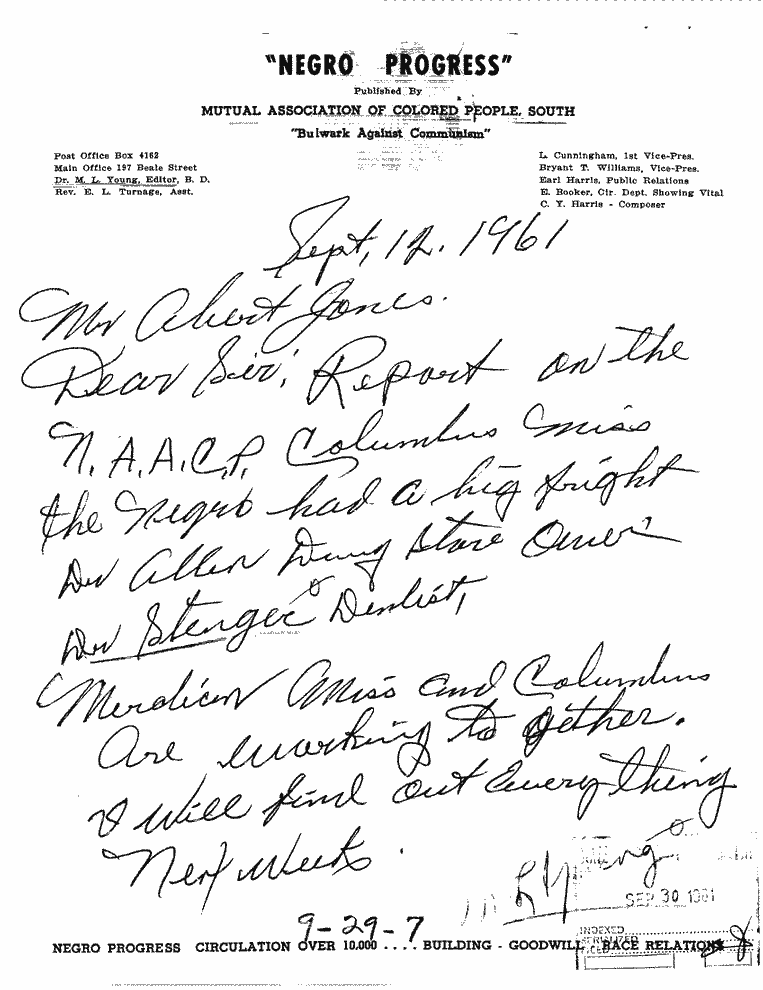 "NEGRO PROGRESS"
Published By
MUTUAL ASSOCIATION OF COLORED PEOPLE, SOUTH
"Bulwark Against Communism"
Post Office Box 4162
Main Office 197 Beale Street
Dr. M. L. Young, Editor, B. D.
Rev. E. L. Turnage, Asst.
L. Cunningham, 1st Vice-Pres.
Bryant T. Williams, Vice-Pres.
Earl Harris, Public Relations
E. Booker, Cir. Dept. Showing Vital
C. Y. Harris - Composer
Sept, 12. 1961
Mr Albert Jones.
Dear Sir; Report on the
N.A.A.C.P. Columbus Miss
the Negro had a big fright
Dr Allen Drug Store Owner
Dr Stenger Dentist,
Merdican Miss and Columbus
are working to gether.
I will find out Everything
Next week.
M L Young
SEP 30 1961
INDEXED
SERIALIZED
FILED
9-29-7
NEGRO PROGRESS CIRCULATION OVER 10.000 .... BUILDING - GOODWILL, RACE RELATIONS